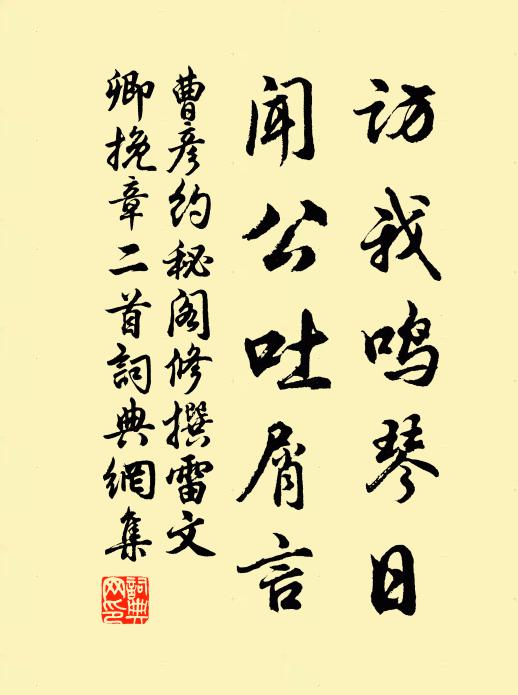 访我鸣琴日
闻公吐屑言
曹彦约秘阁修撰雷文
卿挽章二首詞典網集
詞典網印